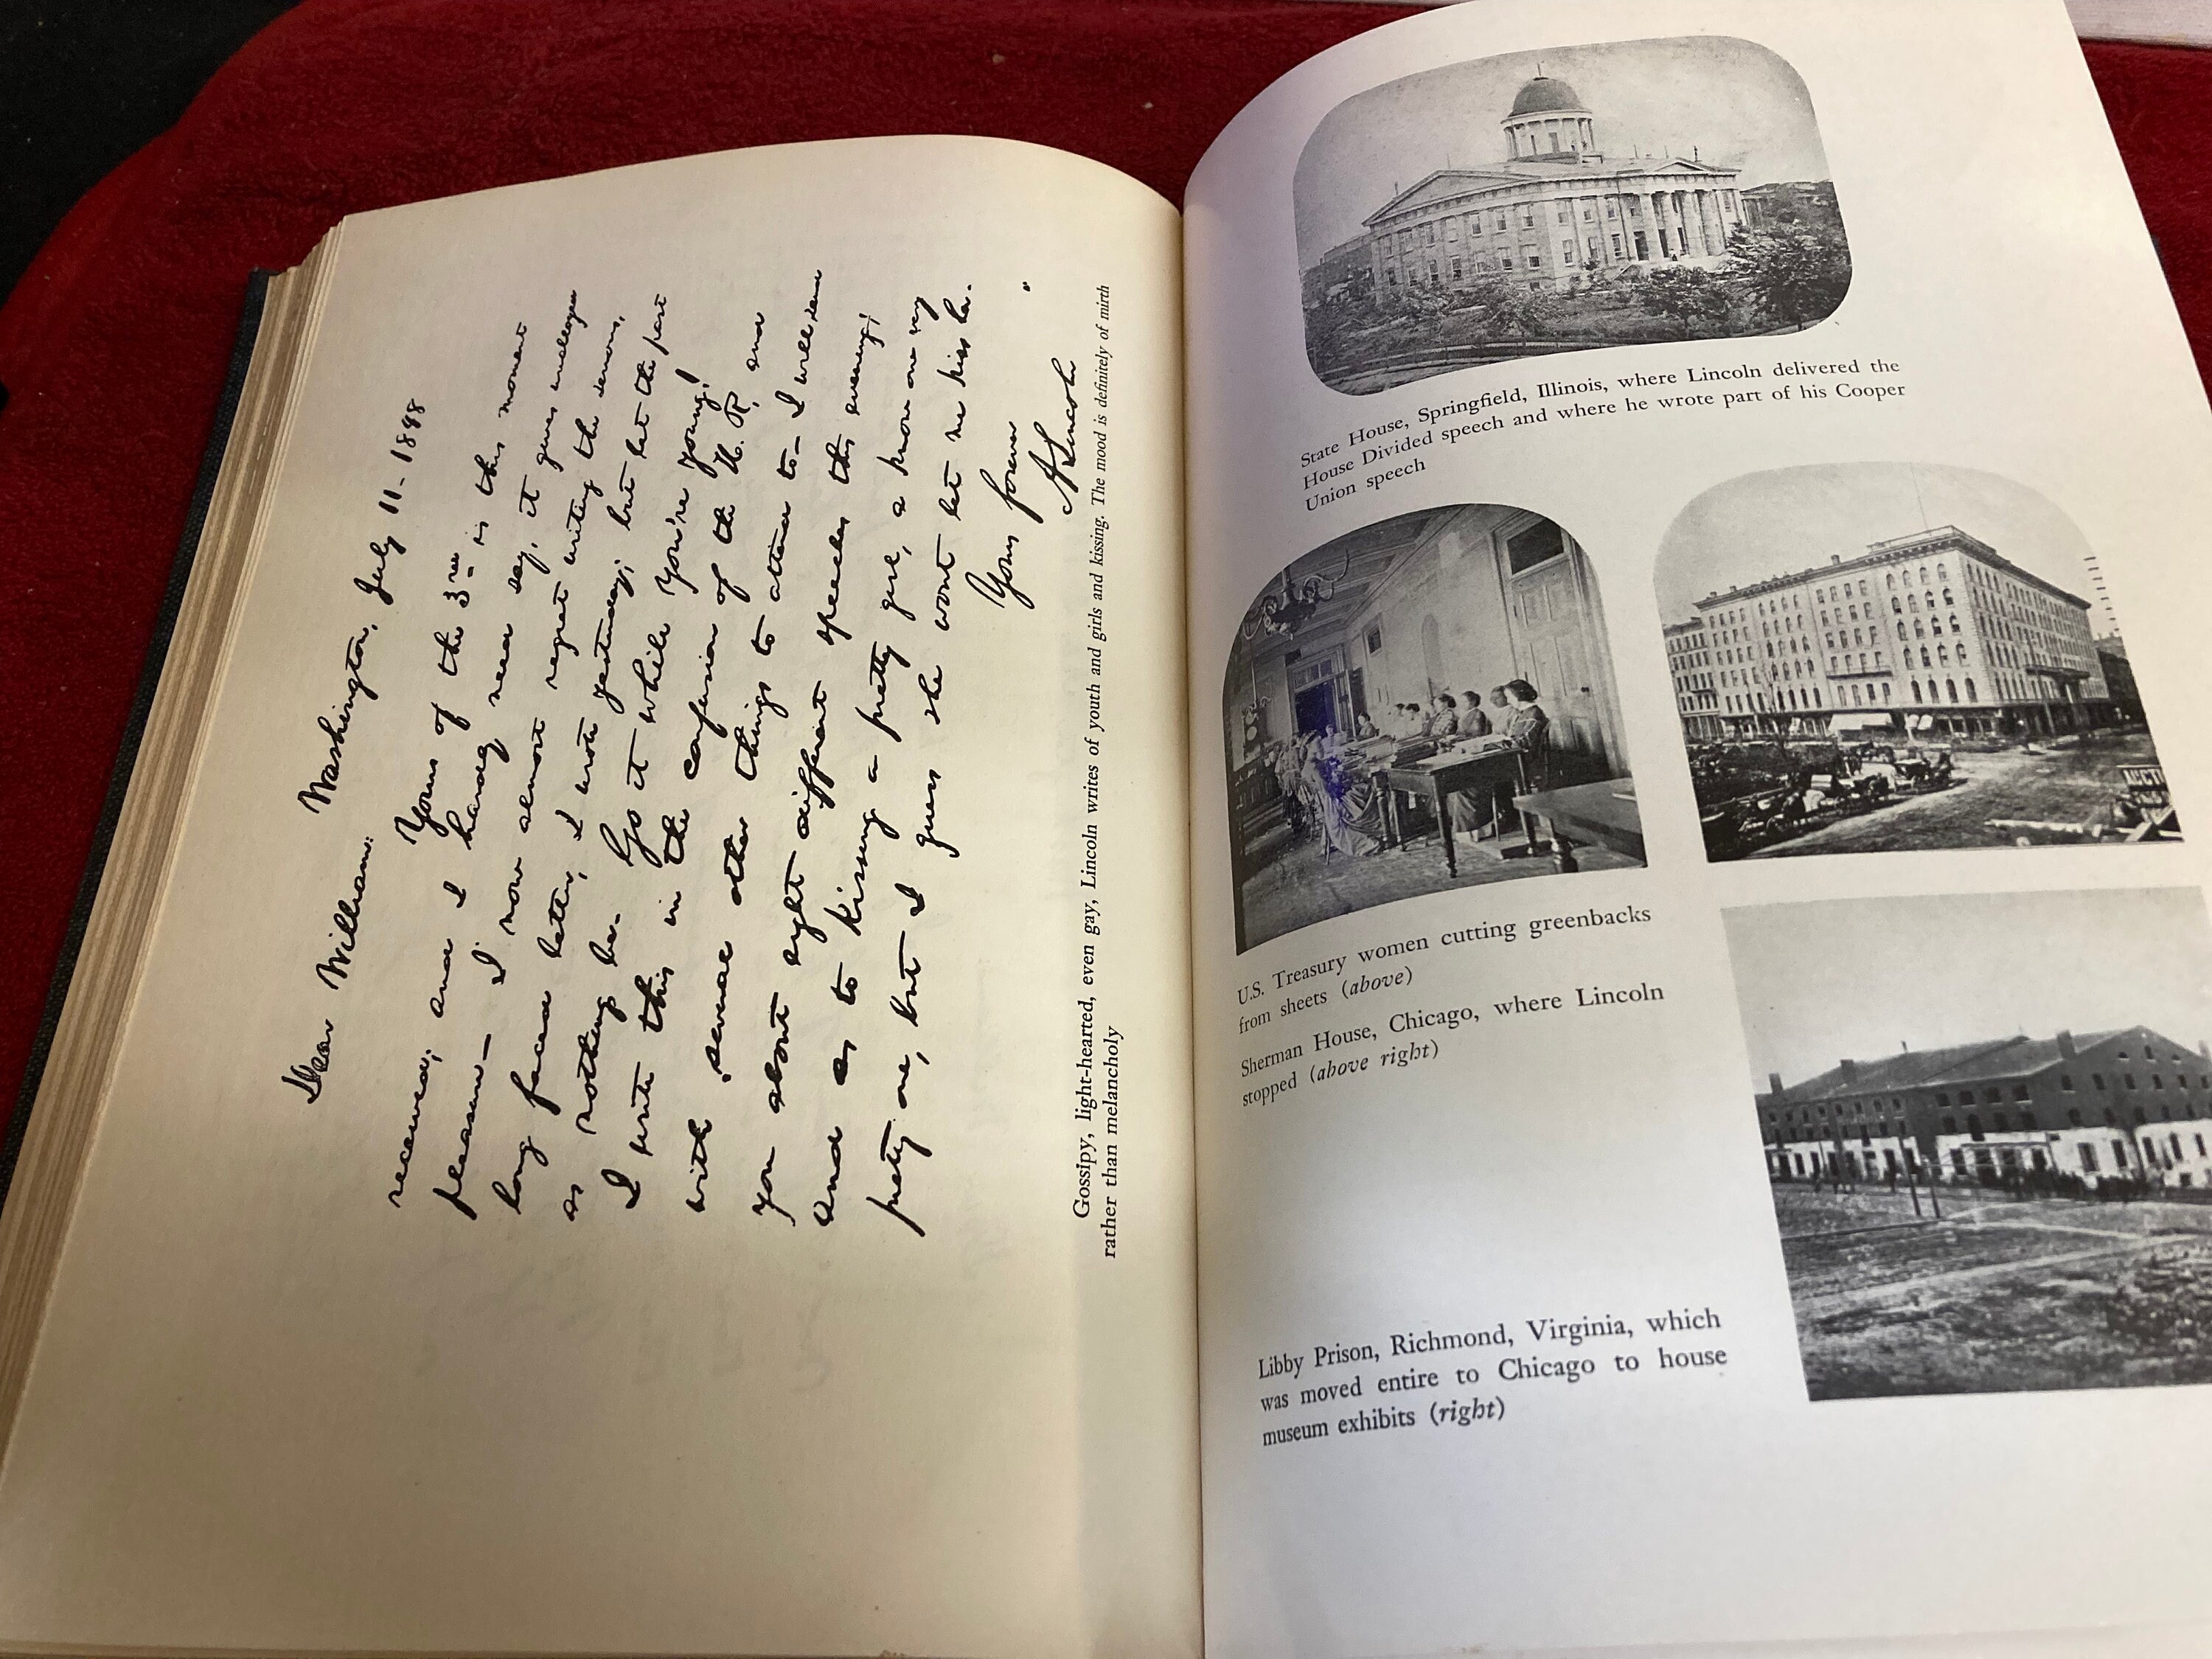 Washington, July 11- 1848
Dear William:
Yours of the 3rd is this moment
received; and I hardly need say, it gives unalloyed
pleasure- I now almost regret writing the serious,
long faced letter, I wrote yesterday; but let the past
as nothing be. Go it while you're young!
I write this in the confusion of the H. R. and
with several other things to attend to- I will send
you about eight different speeches this evening;
and as to kissing a pretty girl, I know one very
pretty one, but I guess she wont let me kiss her.
Yours forever
A Lincoln
Gossipy, light-hearted, even gay, Lincoln writes of youth and girls and kissing. The mood is definitely of mirth
rather than melancholy
State House, Springfield, Illinois, where Lincoln delivered the
House Divided speech and where he wrote part of his Cooper
Union speech
U.S. Treasury women cutting greenbacks
from sheets (above)
Sherman House, Chicago, where Lincoln
stopped (above right)
Libby Prison, Richmond, Virginia, which
was moved entire to Chicago to house
museum exhibits (right)